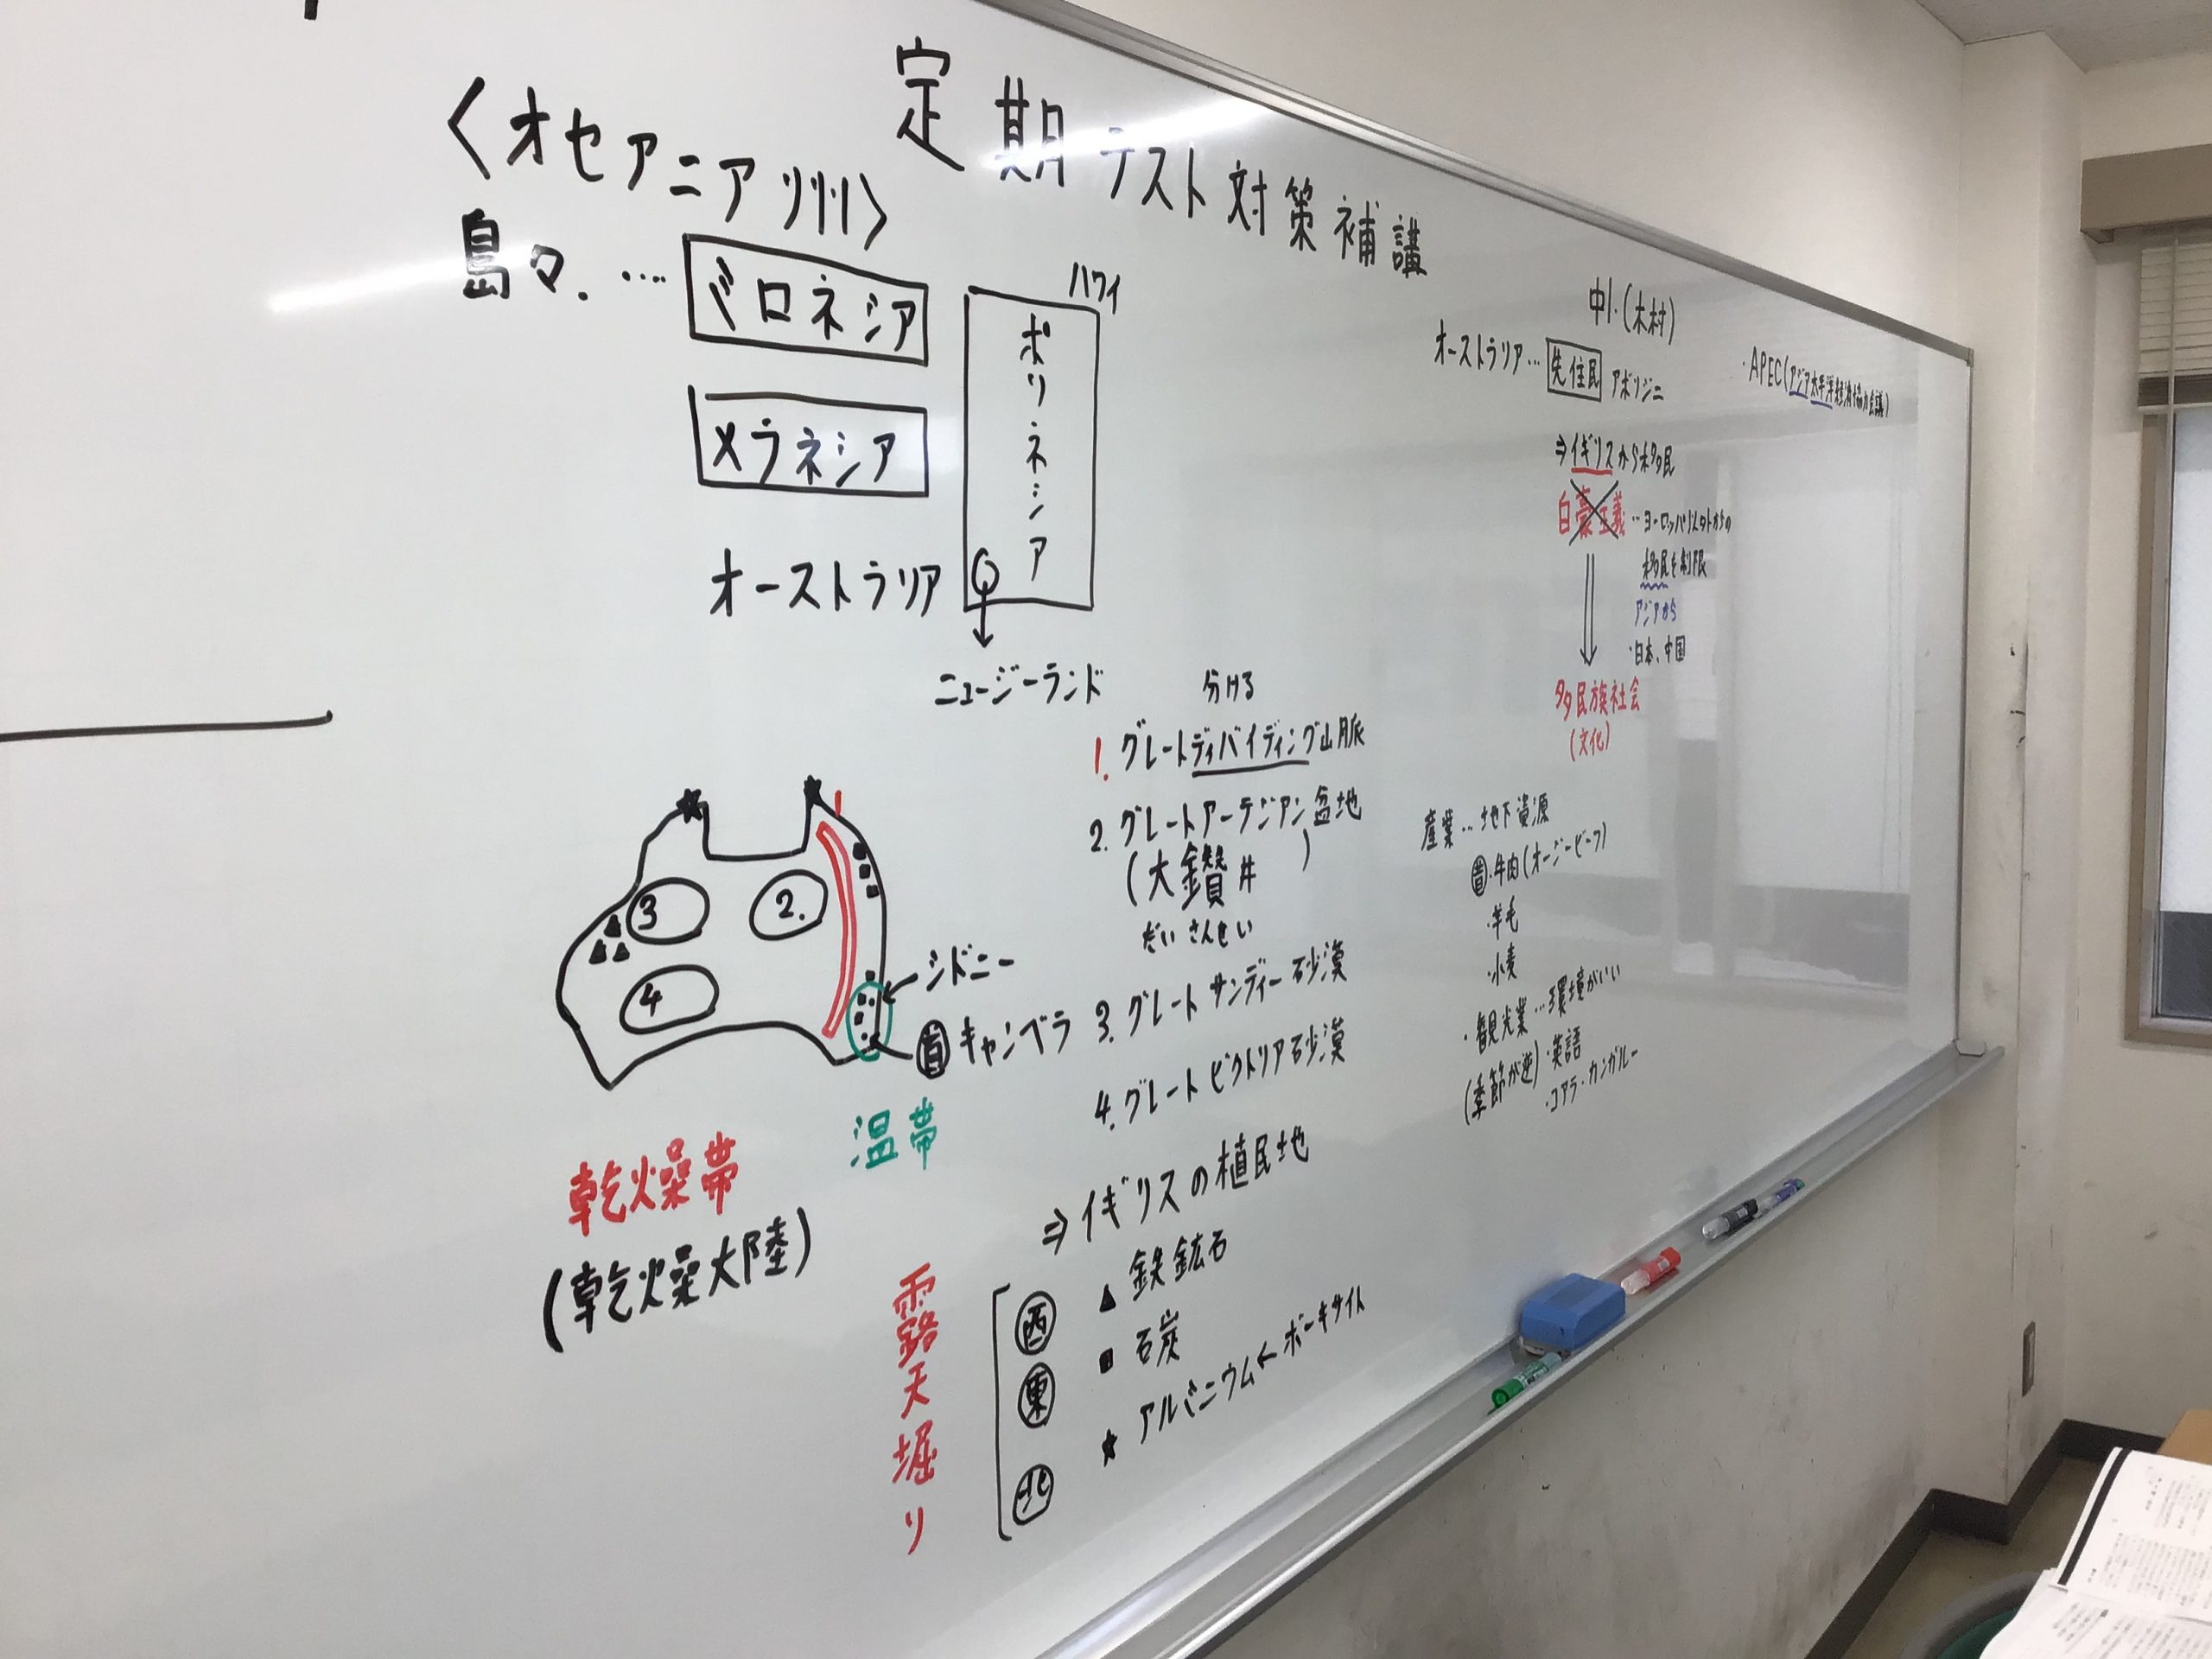 定期テスト対策補講
中1.(木村)
<オセアニア州>
島々.…
ミクロネシア
メラネシア
ポリネシア
ハワイ
オーストラリア
ニュージーランド
分ける
1. グレートディバイディング山脈
2. グレートアーテジアン盆地
(大鑽井)
だいさんせい
3. グレートサンディー砂漠
4. グレートビクトリア砂漠
1
2.
3
4
シドニー
首 キャンベラ
温帯
乾燥帯
(乾燥大陸)
⇒イギリスの植民地
露天堀り
西 ▲ 鉄鉱石
東 ■ 石炭
北 ★ アルミニウム←ボーキサイト
オーストラリア…先住民 アボリジニ
⇒イギリスから移民
白豪主義…ヨーロッパ以外からの
移民を制限
アジアから
・日本、中国
多民族社会
(文化)
産業…地下資源
・牛肉(オージービーフ)
・羊毛
・小麦
・観光業…環境がいい
(季節が逆)・英語
・コアラ・カンガルー
・APEC(アジア太平洋経済協力会議)